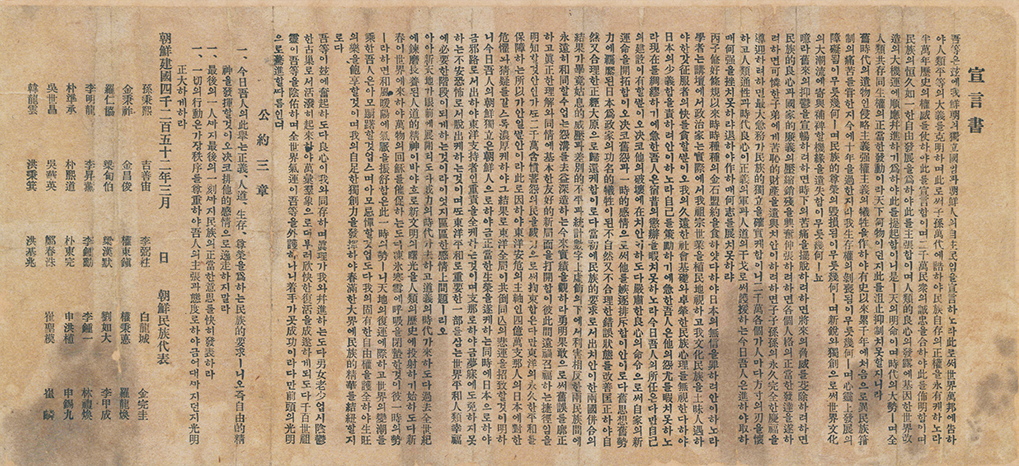 宣言書
吾等은玆에我鮮朝의獨立國임과朝鮮人의自主民임을宣言하노라此로써世界萬邦에告하
야人類平等의大義를克明하며此로써子孫萬代에誥하야民族自存의正權을永有케하노라
半萬年歷史의權威를仗하야此를宣言함이며二千萬民衆의誠忠을合하야此를佈明함이며民
族의恒久如一한自由發展을爲하야此를主張함이며人類的良心의發露에基因한世界改
造의大機運에順應幷進하기爲하야此를提起함이니是ㅣ天의明命이며時代의大勢ㅣ며全
人類共存同生權의正當한發動이라天下何物이던지此를沮止抑制치못할지니라
舊時代의遺物인侵略主義强權主義의犧牲을作하야有史以來累千年에처음으로異民族箝
制의痛苦를嘗한지今에十年을過한지라我生存權의剝喪됨이무릇幾何ㅣ며心靈上發展의
障礙됨이무릇幾何ㅣ며民族的尊榮의毁損됨이무릇幾何ㅣ며新銳와獨創으로써世界文化
의大潮流에寄與補裨할機緣을遺失함이무릇幾何ㅣ뇨
噫라舊來의抑鬱을宣暢하려하면時下의苦痛을擺脫하려하면將來의脅威를芟除하려하면
民族的良心과國家的廉義의壓縮銷殘을興奮伸張하려하면各個人格의正當한發達을遂하
려하면可憐한子弟에게苦恥的財産을遺與치안이하려하면子子孫孫의永久完全한慶福을
導迎하려하면最大急務가民族的獨立을確實케함이니二千萬各個가人마다方寸의刃을懷
하고人類通性과時代良心이正義의軍과人道의干戈로써護援하는今日吾人은進하야取하
매何强을挫치못하랴退하야作하매何志를展치못하랴
丙子修好條規以來時時種種의金石盟約을食하얏다하야日本의無信을罪하려안이하노라
學者는講壇에서政治家는實際에서我祖宗世業을植民地視하고我文化民族을土昧人遇하
야한갓征服者의快를貪할뿐이오我의久遠한社會基礎와卓犖한民族心理를無視한다하야
日本의少義함을責하려안이하노라自己를策勵하기에急한吾人은他의怨尤를暇치못하노
라現在를綢繆하기에急한吾人은宿昔의懲辯을暇치못하노라今日吾人의所任은다만自己
의建設이有할뿐이오決코他의破壞에在치안이하도다嚴肅한良心의命令으로써自家의新
運命을開拓함이오決코舊怨과一時的感情으로써他를嫉逐排斥함이안이로다舊思想舊勢
力에覊縻된日本爲政家의功名的犧牲이된不自然又不合理한錯誤狀態를改善匡正하야自
然又合理한正經大原으로歸還케함이로다當初에民族的要求로서出치안이한兩國併合의
結果가畢竟姑息的威壓과差別的不平과統計數字上虛飾의下에서利害相反한兩民族間에
永遠히和同할수업는怨溝를去益深造하는今來實績을觀하라勇明果敢으로써舊誤를廓正
하고眞正한理解와同情에基本한友好的新局面을打開함이彼此間遠禍召福하는捷徑임을
明知할것안인가또二千萬含憤蓄怨의民을威力으로써拘束함은다만東洋의永久한平和를
保障하는所以가안일뿐안이라此로因하야東洋安危의主軸인四億萬支那人의日本에對한
危懼와猜疑를갈스록濃厚케하야그結果로東洋全局이共倒同亡의悲運을招致할것이明하
니今日吾人의朝鮮獨立은朝鮮人으로하야금正當한生榮을遂케하는同時에日本으로하야
금邪路로서出하야東洋支持者인重責을全케하는것이며支那로하야금夢寐에도免하지못
하는不安恐怖로서脫出케하는것이며또東洋平和로重要한一部를삼는世界平和人類幸福
에必要한階段이되게하는것이라이엇지區區한感情上問題ㅣ리오
아아新天地가眼前에展開되도다威力의時代가去하고道義의時代가來하도다過去全世紀
에鍊磨長養된人道的精神이바야흐로新文明의曙光을人類의歷史에投射하기始하도다新
春이世界에來하야萬物의回穌를催促하는도다凍氷寒雪에呼吸을閉蟄한것이彼一時의勢
ㅣ라하면和風暖陽에氣脈을振舒함은此一時의勢ㅣ니天地의復運에際하고世界의變潮를
乘한吾人은아모躊躇할것업스며아모忌憚할것업도다我의固有한自由權을護全하야生旺
의樂을飽享할것이며我의自足한獨創力을發揮하야春滿한大界에民族的精華를結紐할지
로다
吾等이玆에奮起하도다良心이我와同存하며眞理가我와幷進하는도다男女老少업시陰鬱
한古巢로서活潑히起來하야萬彙羣象으로더부러欣快한復活을成遂하게되도다千百世祖
靈이吾等을陰佑하며全世界氣運이吾等을外護하나니着手가곳成功이라다만前頭의光明
으로驀進할따름인뎌
公約三章
一、今日吾人의此擧는正義、人道、生存、尊榮을爲하는民族的要求ㅣ니오즉自由的精
神을發揮할것이오決코排他的感情으로逸走하지말라
一、最後의一人까지最後의一刻까지民族의正當한意思를快히發表하라
一、一切의行動은가장秩序를尊重하야吾人의主張과態度로하야금어대까지던지光明
正大하게하라
朝鮮建國四千二百五十二年三月 日 朝鮮民族代表
孫秉熙 吉善宙 李弼柱 白龍城 金完圭
金秉祚 金昌俊 權東鎭 權秉悳 羅龍煥
羅仁協 梁甸伯 梁漢默 劉如大 李甲成
李明龍 李昇薰 李鍾勳 李鍾一 林禮煥
朴準承 朴熙道 朴東完 申洪植 申錫九
吳世昌 吳華英 鄭春洙 崔聖模 崔麟
韓龍雲 洪秉箕 洪基兆